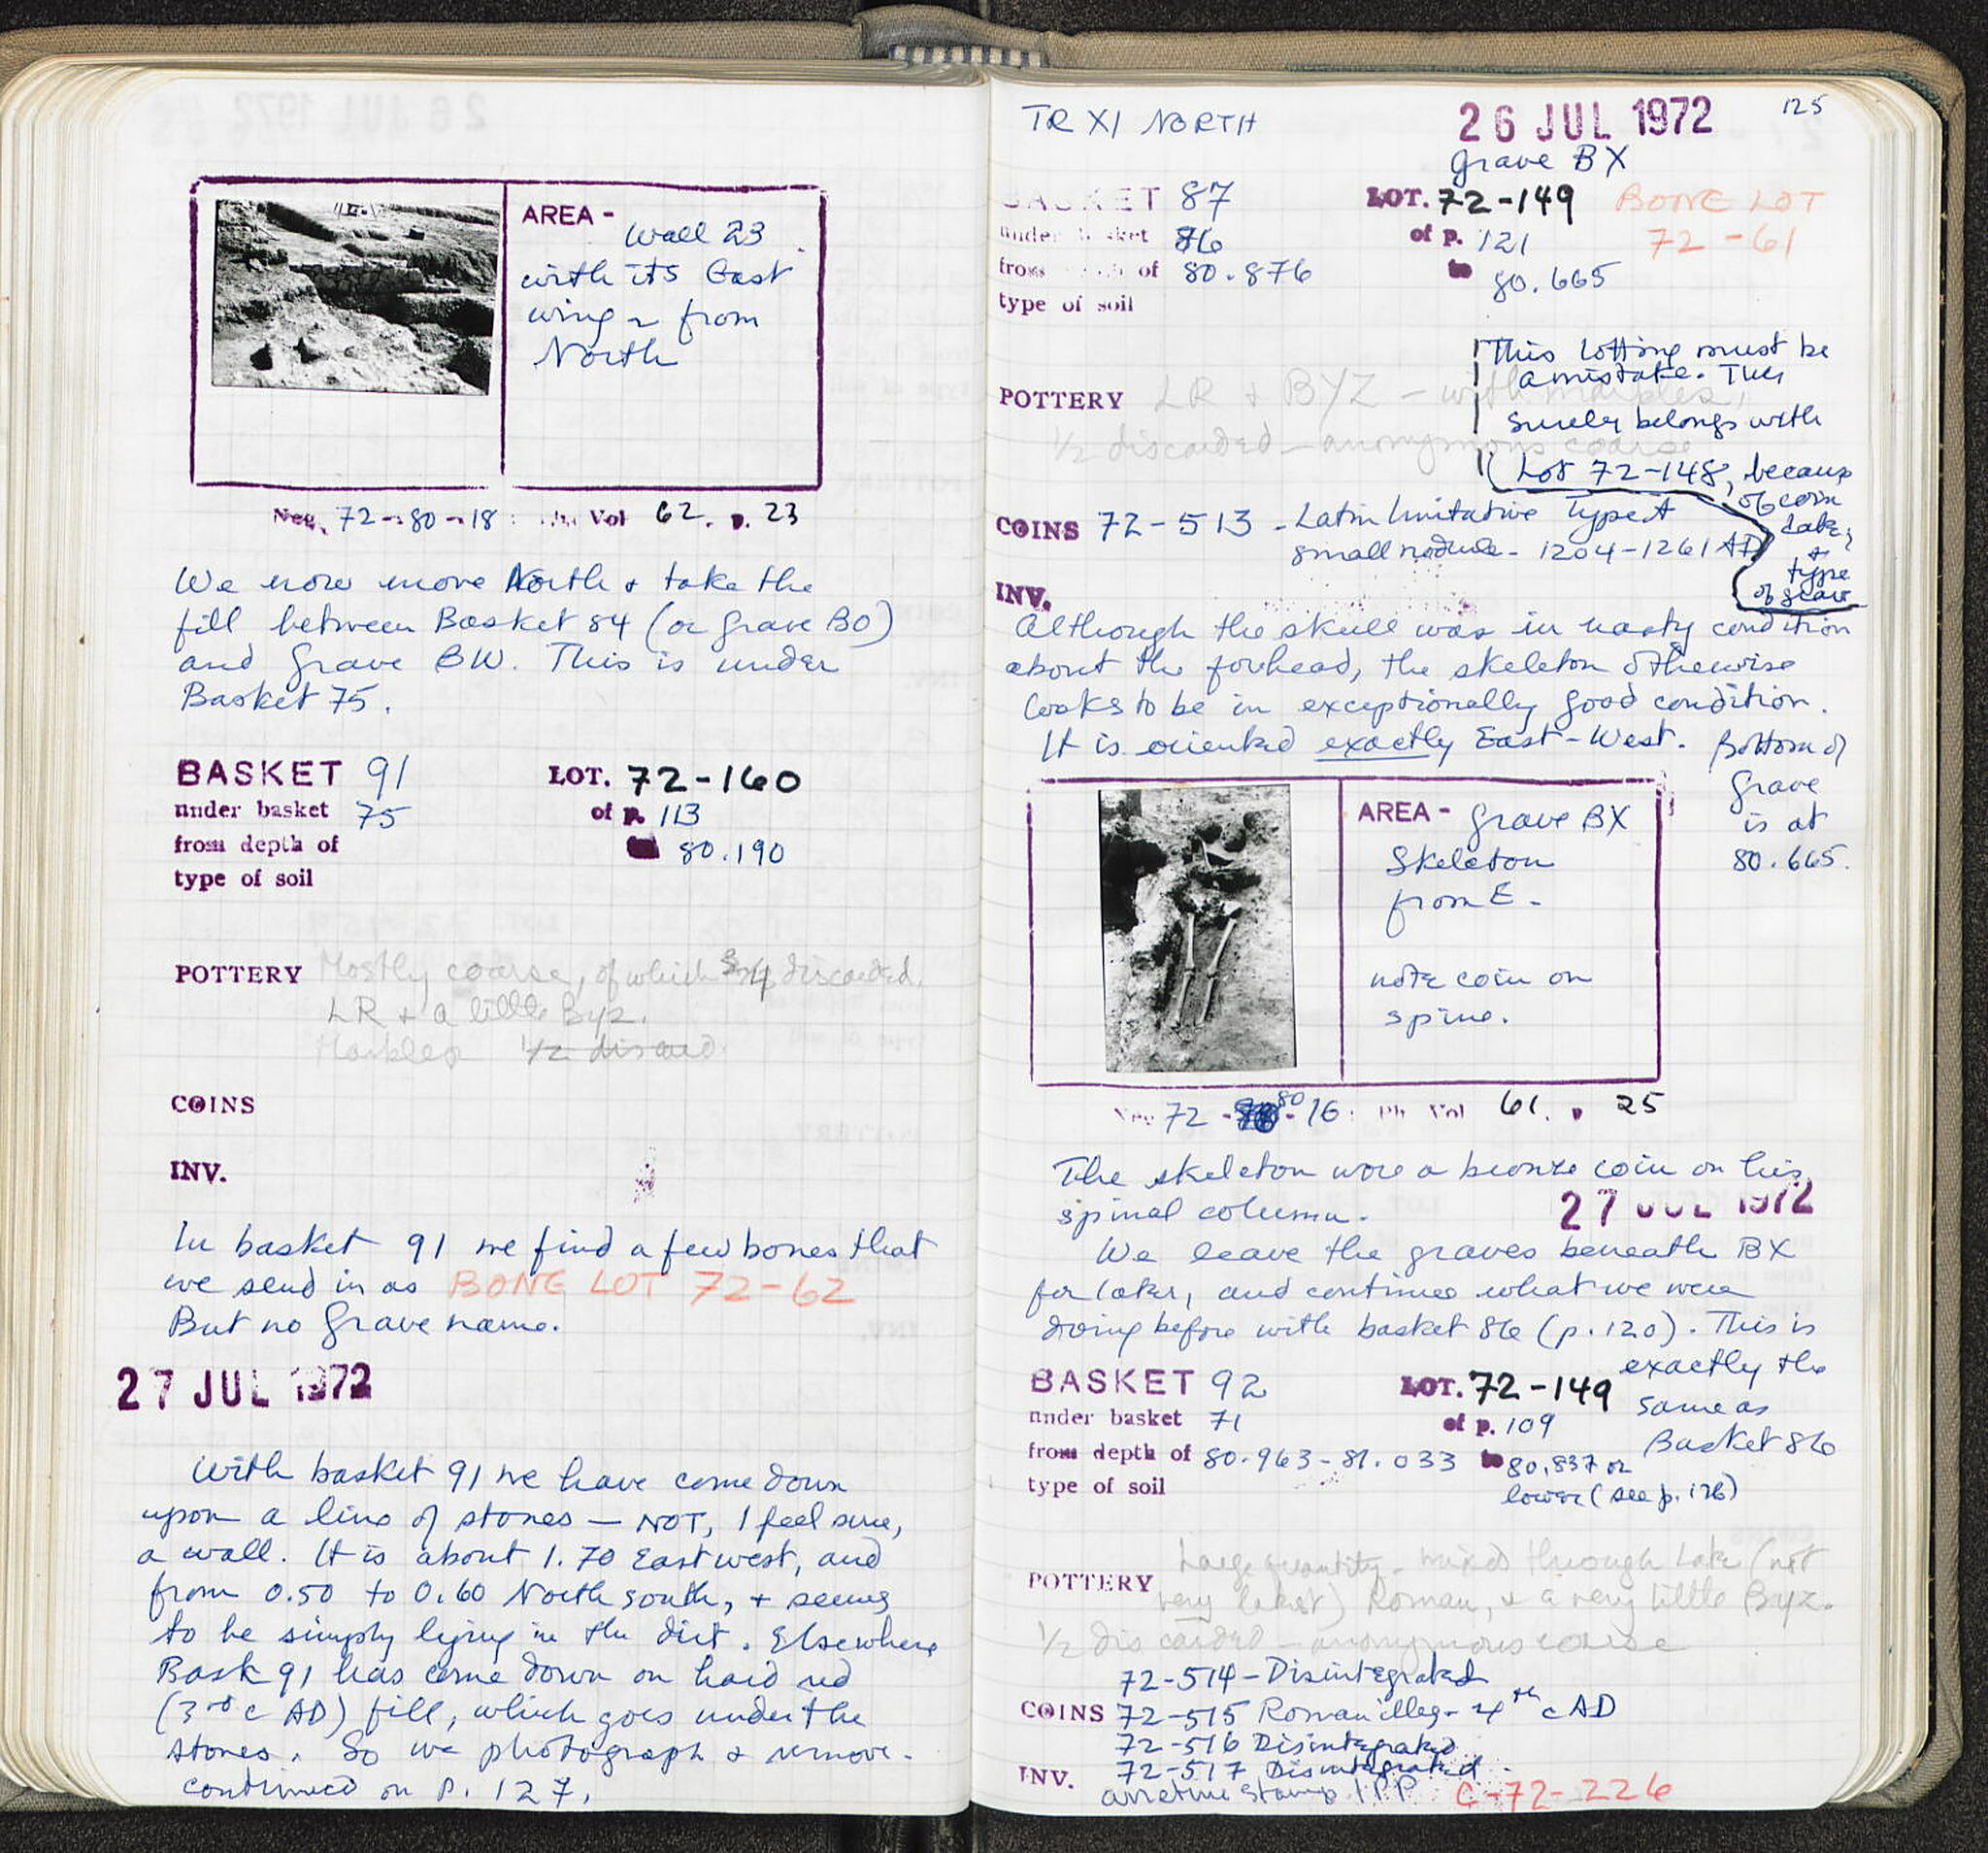 AREA - Wall 23
with its East
wing ~ from
North
Neg. 72-80-18: Ph Vol 62. p. 23
We now move North & take the
fill between Basket 84 (or grave BO)
and grave BW. This is under
Basket 75.
BASKET 91 LOT. 72-160
under basket 75 of p. 113
from depth of 80.190
type of soil
POTTERY Mostly coarse, of which 3/4 discarded.
LR & a little Byz.
1/2 discard
COINS
INV.
In basket 91 we find a few bones that
we send in as BONE LOT 72-62
But no Grave name.
27 JUL 1972
With basket 91 we have come down
upon a line of stones — NOT, I feel sure,
a wall. It is about 1.70 East west, and
from 0.50 to 0.60 North south, + seems
to be simply lying in the dirt. Elsewhere
Bask 91 has come down on hard red
(3rd c AD) fill, which goes under the
stones. So we photograph & remove.
continued on p. 127.
TR XI NORTH 26 JUL 1972 125
grave BX
BASKET 87 LOT. 72-149 BONE LOT
under basket 76 of p. 121 72-61
from depth of 80.876 to 80.665
type of soil
This lotting must be
a mistake. This
surely belongs with
Lot 72-148, because
of coin
date,
+
type
of grave
POTTERY LR & BYZ - with marbles,
1/2 discarded - anonymous coarse
COINS 72-513 - Latin Imitative Type A
small module - 1204-1261 AD
INV.
Although the skull was in nasty condition
about the forhead, the skeleton otherwise
looks to be in exceptionally good condition.
It is oriented exactly East-West. Bottom of
grave
is at
80.665.
AREA - grave BX
Skeleton
from E -
note coin on
spine.
Neg 72 - 80 - 16: Ph Vol 61. p 25
The skeleton wore a bronze coin on his
spinal column.
27 JUL 1972
We leave the graves beneath BX
for later, and continue what we were
doing before with basket 86 (p. 120). This is
exactly the
same as
Basket 86
BASKET 92 LOT. 72-149
under basket 71 of p. 109
from depth of 80.963-81.033 to 80.837 or
lower (see p. 126)
type of soil
POTTERY Large quantity - mixed through Late (not
very latest) Roman, & a very little Byz.
1/2 discarded - anonymous coarse
72-514 - Disintegrated
COINS 72-515 Roman illeg - 4th c AD
72-516 Disintegrated
72-517 Disintegrated
INV. arretine stamp C-72-226